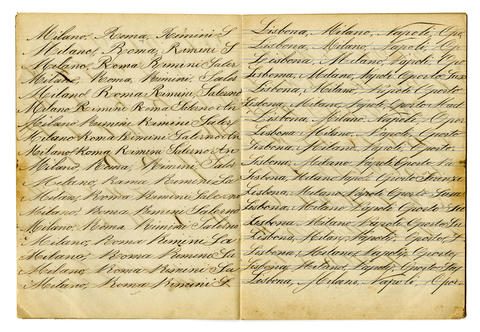 Milano, Roma, Rimini S
Milano, Roma, Rimini S
Milano, Roma Rimini Saler
Milano, Roma, Rimini, Saler
Milano Roma Rimini, Salerno
Milano Rimini Rimini Salerno
Milano Rimini, Rimini, Saler
Milano Roma Rimini Salerno An
Milano Roma Rimini Salerno An
Milano, Roma, Rimini, Saler
Milano, Roma Rimini Sa
Milano, Roma Rimini Salerno
Milano, Roma Rimini Salerno
Milano, Roma Rimini, Salerno
Milano, Roma Rimini Sa
Milano, Roma Rimini Sa
Milano, Roma Rimini, Sa
Milano, Roma Rimini S
Lisbona, Milano, Napoli, Opor
Lisbona, Milano, Napoli, Op
Lisbona, Milano, Napoli, Op
Lisbona, Milano, Napoli Oporto
Lisbona, Milano, Napoli, Oporto
Lisbona, Milano, Napoli Oporto
Lisbona, Milano, Napoli, Op
Lisbona, Milano, Napoli, Oporto
Lisbona, Milano, Napoli, Oporto
Lisbona, Milano Napoli Oporto
Lisbona, Milano Napoli, Oporto Firenze
Lisbona, Milano Napoli, Oporto
Lisbona, Milano Napoli, Oporto
Lisbona, Milano Napoli, Oporto
Lisbona, Milano, Napoli, Oporto,
Lisbona, Milano, Napoli, Oporto,
Lisbona, Milano, Napoli, Oporto
Lisbona, Milano, Napoli, Opor